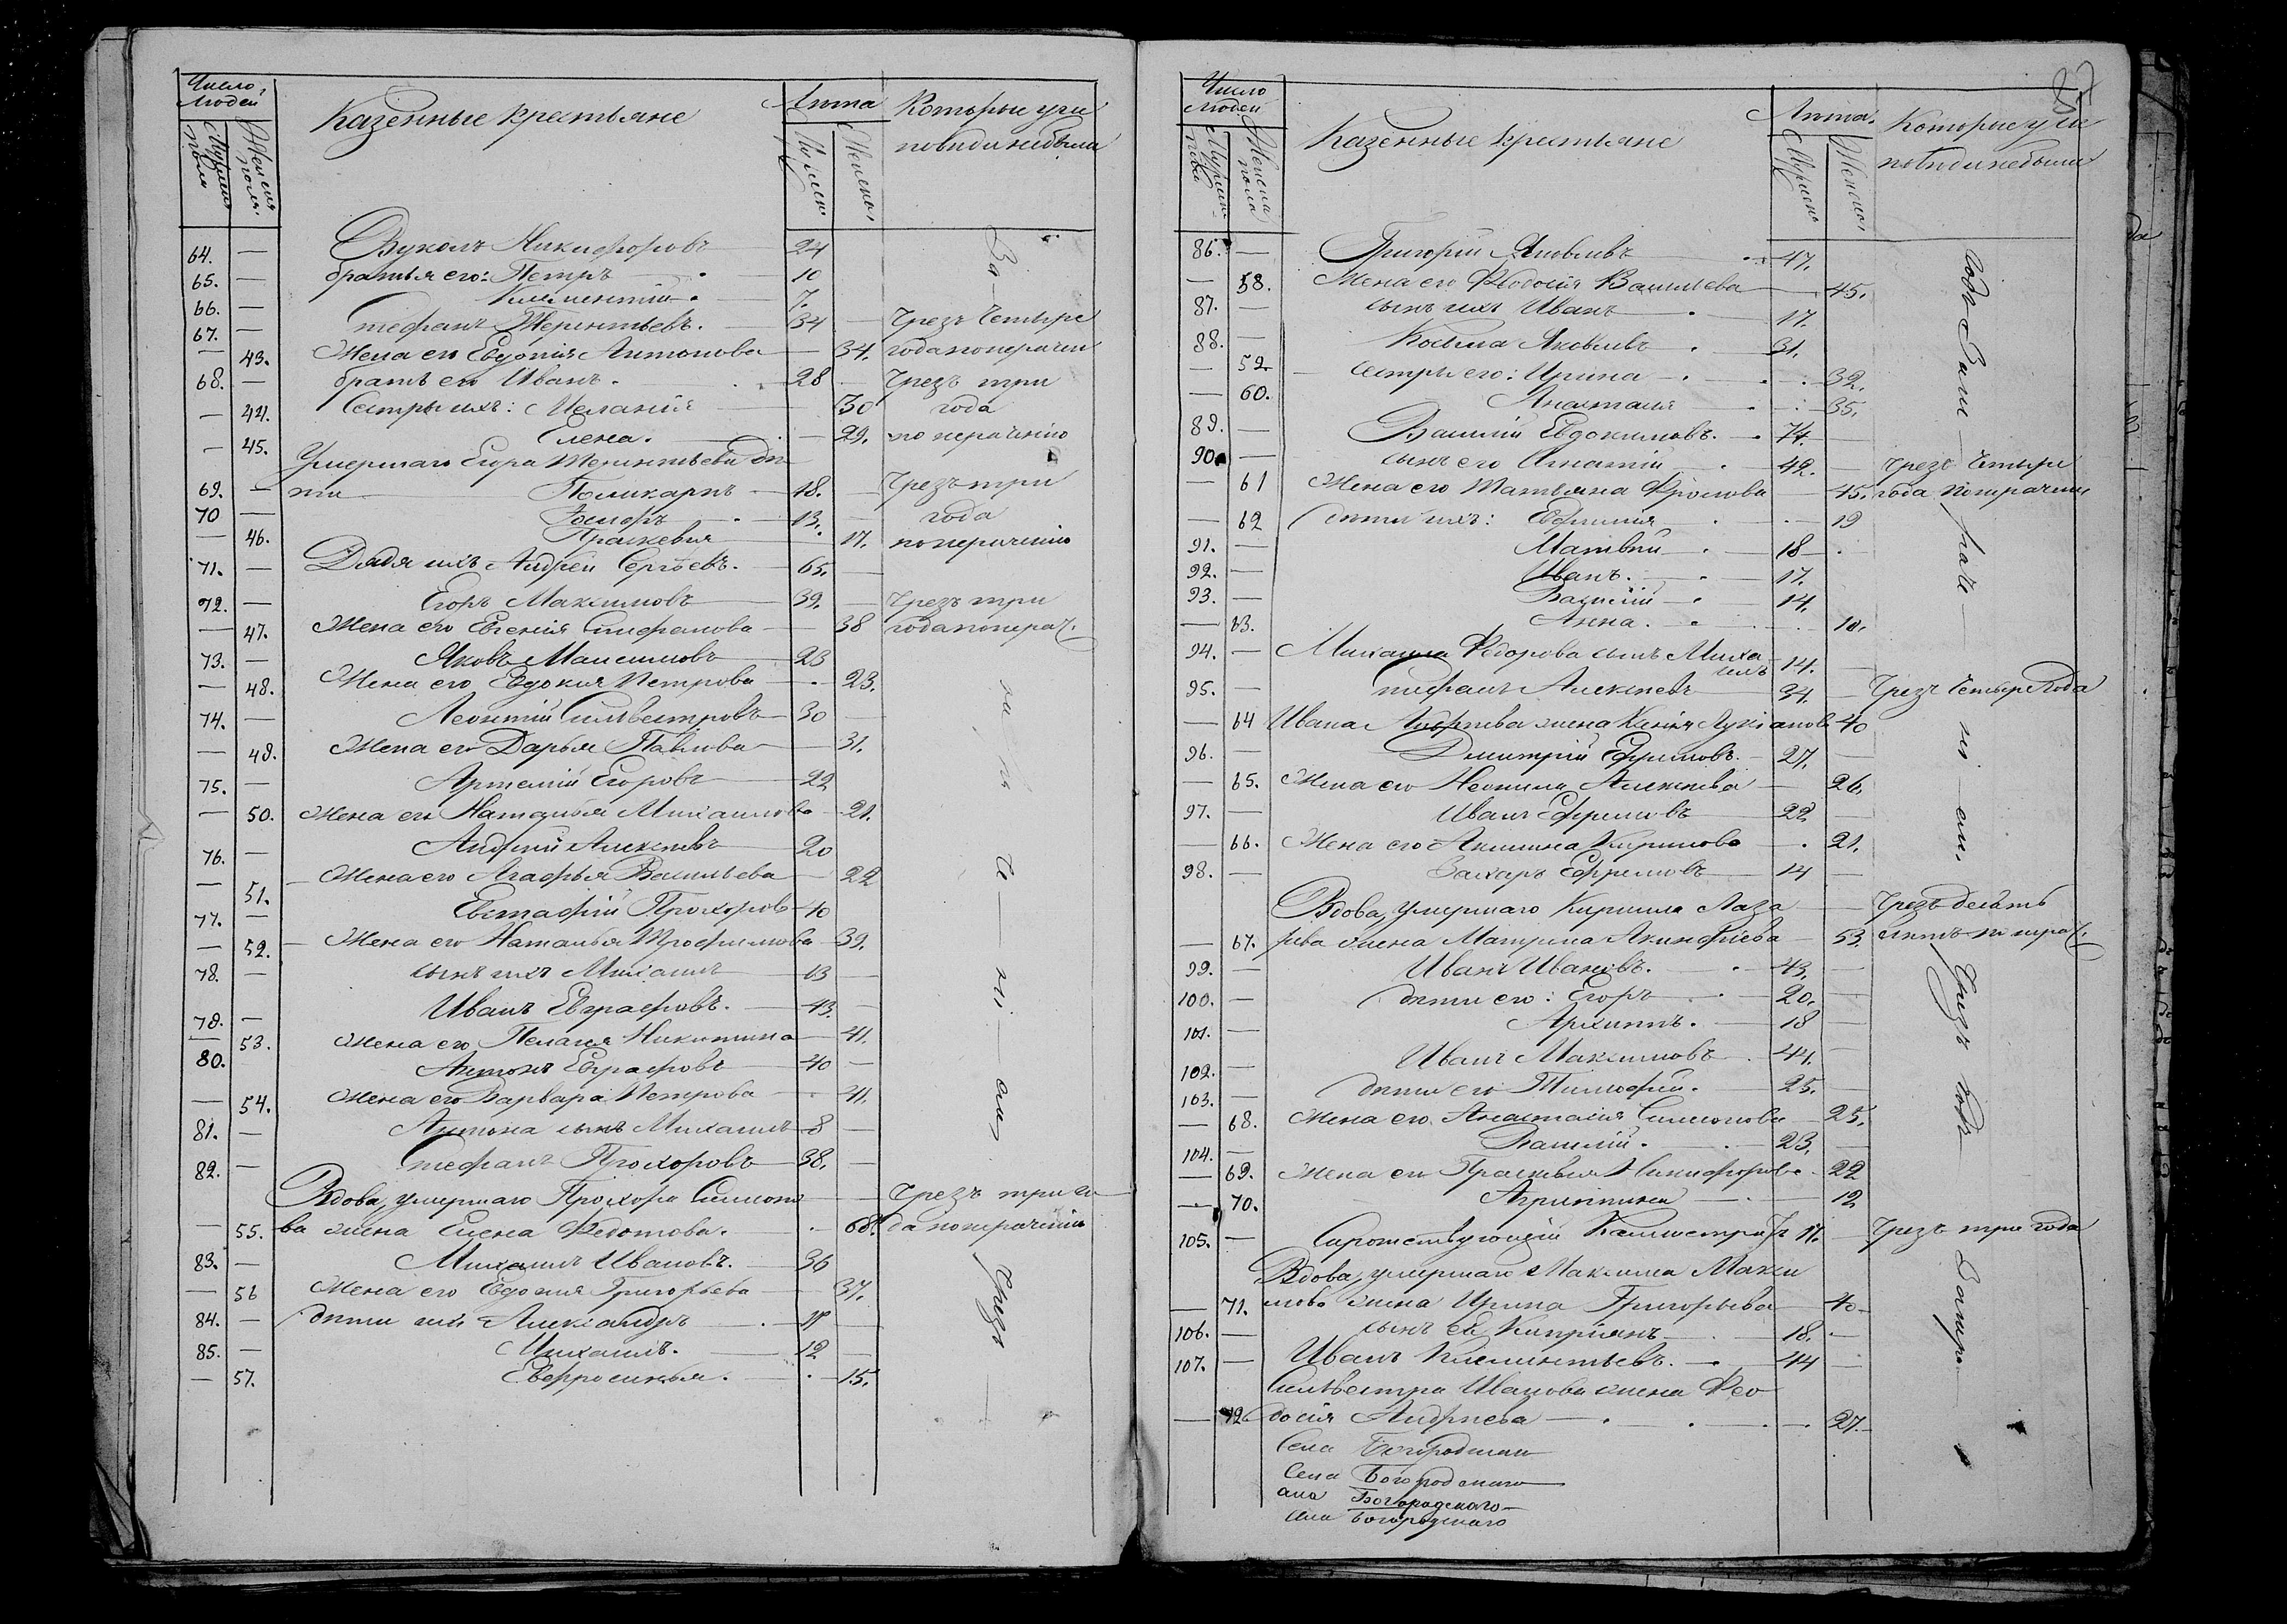 Число людей
Мужеска пола
Женска пола
Казенные крестьяне
Лета
Которые у исповеди не были
64. — Вуколъ Никифоровъ — 24
65. — братья его: Петръ — 10
66. — Климентій — 7.
67. — Стефанъ Терентьевъ. — 34 — Чрезъ четыре
— 43. Жена его Евдокія Антонова — 34. года по нерачен
68. — братъ его Иванъ. — 28 — Чрезъ три
— 44. Сестры ихъ: Меланія 30 года
— 45. Елена. — 29. по нераченію
Умершаго Егора Терентьева дѣ
69. — ти — Поликарпъ — 18. — Чрезъ три
70 — — 13. — года
— 46. Праскевия — 17. по нераченію
71. — Дядя ихъ Андрей Сергѣевъ. — 65. —
72. — Егоръ Максимовъ — 39. — Чрезъ три
— 47. Жена его Евгенія Стефанова — 38 года по нерач.
73. — Яковъ Максимовъ — 23
— 48. Жена его Евдокия Петрова — 23.
74. — Леонтій Сильвестровъ — 30 —
— 49. Жена его Дарья Павлова — 31.
75. — Артемій Егоровъ — 22
— 50. Жена его Наталья Михаилова — 21.
76. — Андрей Алексѣевъ — 20
— 51. Жена его Агафья Васильева — 22
77. — Евстафій Прохоровъ — 40
— 52. Жена его Наталья Трофимова — 39.
78. — сынъ ихъ Михаилъ — 13 —
79. — Иванъ Евграфовъ. — 43. —
53. Жена его Пелагея Никитина — 41.
80. Антонъ Евграфовъ — 40 —
— 54. Жена его Варвара Петрова — 41.
81. — Антона сынъ Михаилъ — 8 —
82. — Стефанъ Прохоровъ — 38. —
Вдова, умершаго Прохора Симоно — Чрезъ три го
— 55. ва жена Елена Федотова. — 68. да по нераченію
83. — Михаилъ Ивановъ. — 36
— 56 Жена его Евдокия Григорьева — 37.
84. — дѣти ихъ Александръ —
85. — Михаилъ. — 12 —
— 57. Евфросинья. — 15.
За
Чрезъ
Число людей
Мужеска пола
Женска пола
Казенные крестьяне
Лета.
Которые у исповеди не были
86. — Григорій Яковлевъ — 47.
— 58. Жена его Феодосія Васильева — 45.
87. — сынъ ихъ Иванъ — 17.
88. — Косьма Яковлевъ — 31.
— 59. Сестры его: Ирина — 32.
— 60. Анастасия — 35.
89. — Василій Евдокимовъ. — 74. —
90. — сынъ его Игнатій — 42. — чрезъ четыре
— 61 Жена его Татьяна Фролова — 45. года по нерачен
— 62 дѣти ихъ: Евфимия — 19
91. — Матвѣй — 18 —
92. — Иванъ. — 17.
93. — Василій — 14.
— 63. Анна. — 10.
94. — Михаила Федорова сынъ Миха
илъ — 14. —
95. — Стефанъ Алексѣевъ — 34. — Чрезъ четыре года
— 64 Ивана Андреева жена Ксенія Лукіанова 40
96. — Дмитрій Ефремовъ. — 27. —
— 65. Жена его Неонила Алексѣева — 26.
97. — Иванъ Ефремовъ — 22 —
— 66. Жена его Акилина Кирилова — 21.
98. — Захаръ Ефремовъ — 14 —
Вдова, умершаго Кирилла Лаза — Чрезъ десять
— 67. рева жена Матрена Акинфіева — 53. лѣтъ по нерач.
99. — Иванъ Ивановъ. — 43. —
100. — дѣти его: Егоръ — 20. —
101. — Архиппъ. — 18 —
102. — Иванъ Максимовъ — 44. —
103. — дѣти его Тимофей. — 25. —
— 68. Жена его Анастасия Симонова — 25.
104. — Василій. — 23. —
— 69. Жена его Прасковья Никифорова — 22
— 70. Агриппина — 12
105. — Сиротствующій Каллистратъ — 17. — Чрезъ три года
Вдова, умершаго Максима Макси
— 71. мова жена Ирина Григорьева — 40 —
106. — сынъ ея Кипріянъ — 18. —
107. — Иванъ Клементьевъ. — 44 —
Сильвестра Иванова жена Фео
— 72 досія Андреева — 27. —
Села Богородскаго
Села Богородскаго
ела Богородскаго
Села Богородскаго
Чрезъ годъ